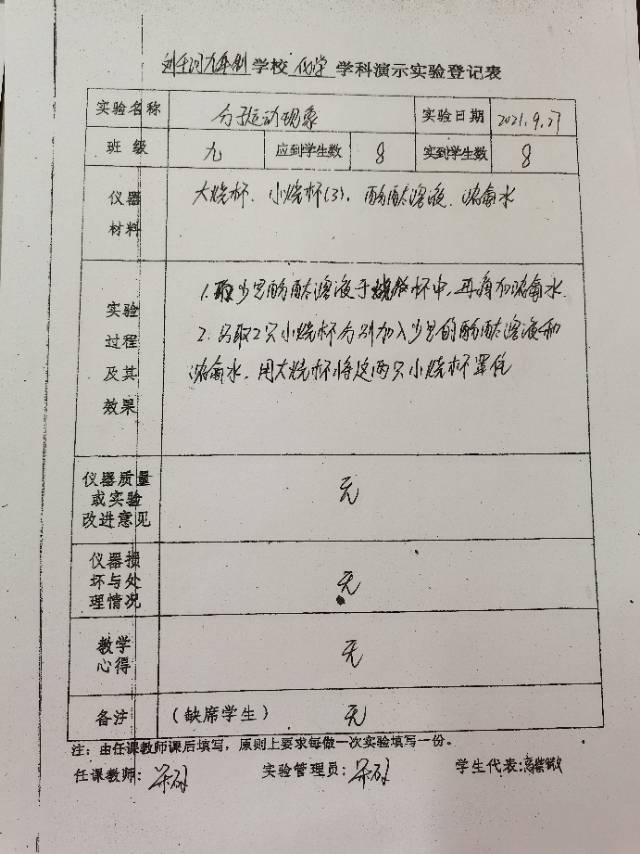 九年制学校 化学 学科演示实验登记表
实验名称 分子运动现象 实验日期 2021.9.27
班级 九 应到学生数 8 实到学生数 8
仪器 大烧杯、小烧杯(3)、酚酞溶液、浓氨水
材料
1.取少量酚酞溶液于烧杯中,再滴加浓氨水.
实验
2.另取2只小烧杯分别加入少量的酚酞溶液和
过程
浓氨水,用大烧杯将这两只小烧杯罩住
及其
效果
仪器质量
或实验 无
改进意见
仪器损
坏与处 无
理情况
教学
心得 无
备注 (缺席学生) 无
注:由任课教师课后填写,原则上要求每做一次实验填写一份。
任课教师: 实验管理员: 学生代表: